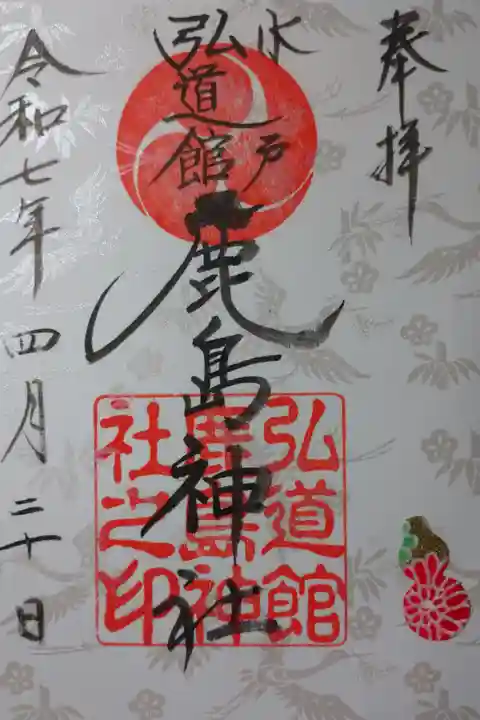 奉拝
水戸
弘道館
鹿島神社
弘道館
鹿島神
社之印
令和七年四月二十日